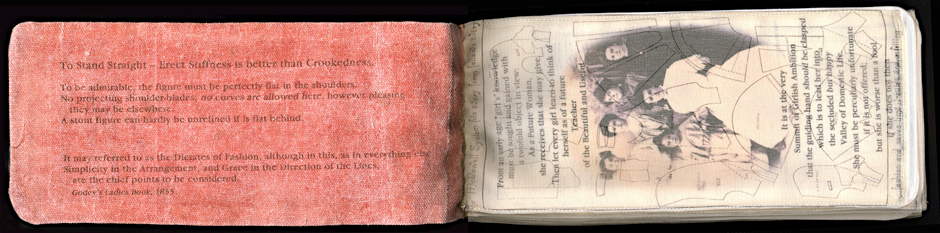 To Stand Straight – Erect Stiffness is better than Crookedness.
To be admirable, the figure must be perfectly flat in the shoulders.
No projecting shoulder-blades, no curves are allowed here, however pleasing
they may be elsewhere.
A stout figure can hardly be unrefined if is flat behind.
It may referred to as the Dictates of Fashion, although in this, as in everything else
Simplicity in the Arrangement, and Grace in the Direction of the Lines,
are the chief points to be considered.
Godey's Ladies Book, 1855
From an early age "girl's" knowledge
must be sought and gained with
a twofold object in view.
As a Future Woman,
she receives that she may give;
Then let every girl learn to think of
herself as a future
Teacher
of the Beautiful and Useful.
It is at the very
Summit of Girlish Ambition
that the guiding hand should be clasped
which is to lead her into
the secluded but happy
Valley of Domestic Life.
She must be peculiarly unfortunate
if it is not offered;
but she is worse than a fool
if she does not then